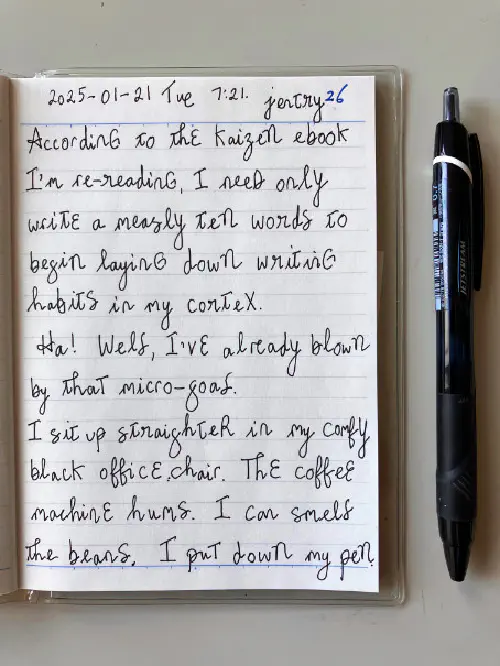 2025-01-21 Tue 7:21. jentry26
According to the Kaizen ebook
I'm re-reading, I need only
write a measly ten words to
begin laying down writing
habits in my cortex.
Ha! Well, I've already blown
by that micro-goal.
I sit up straighter in my comfy
black office chair. The coffee
machine hums. I can smell
the beans. I put down my pen.
JETSTREAM